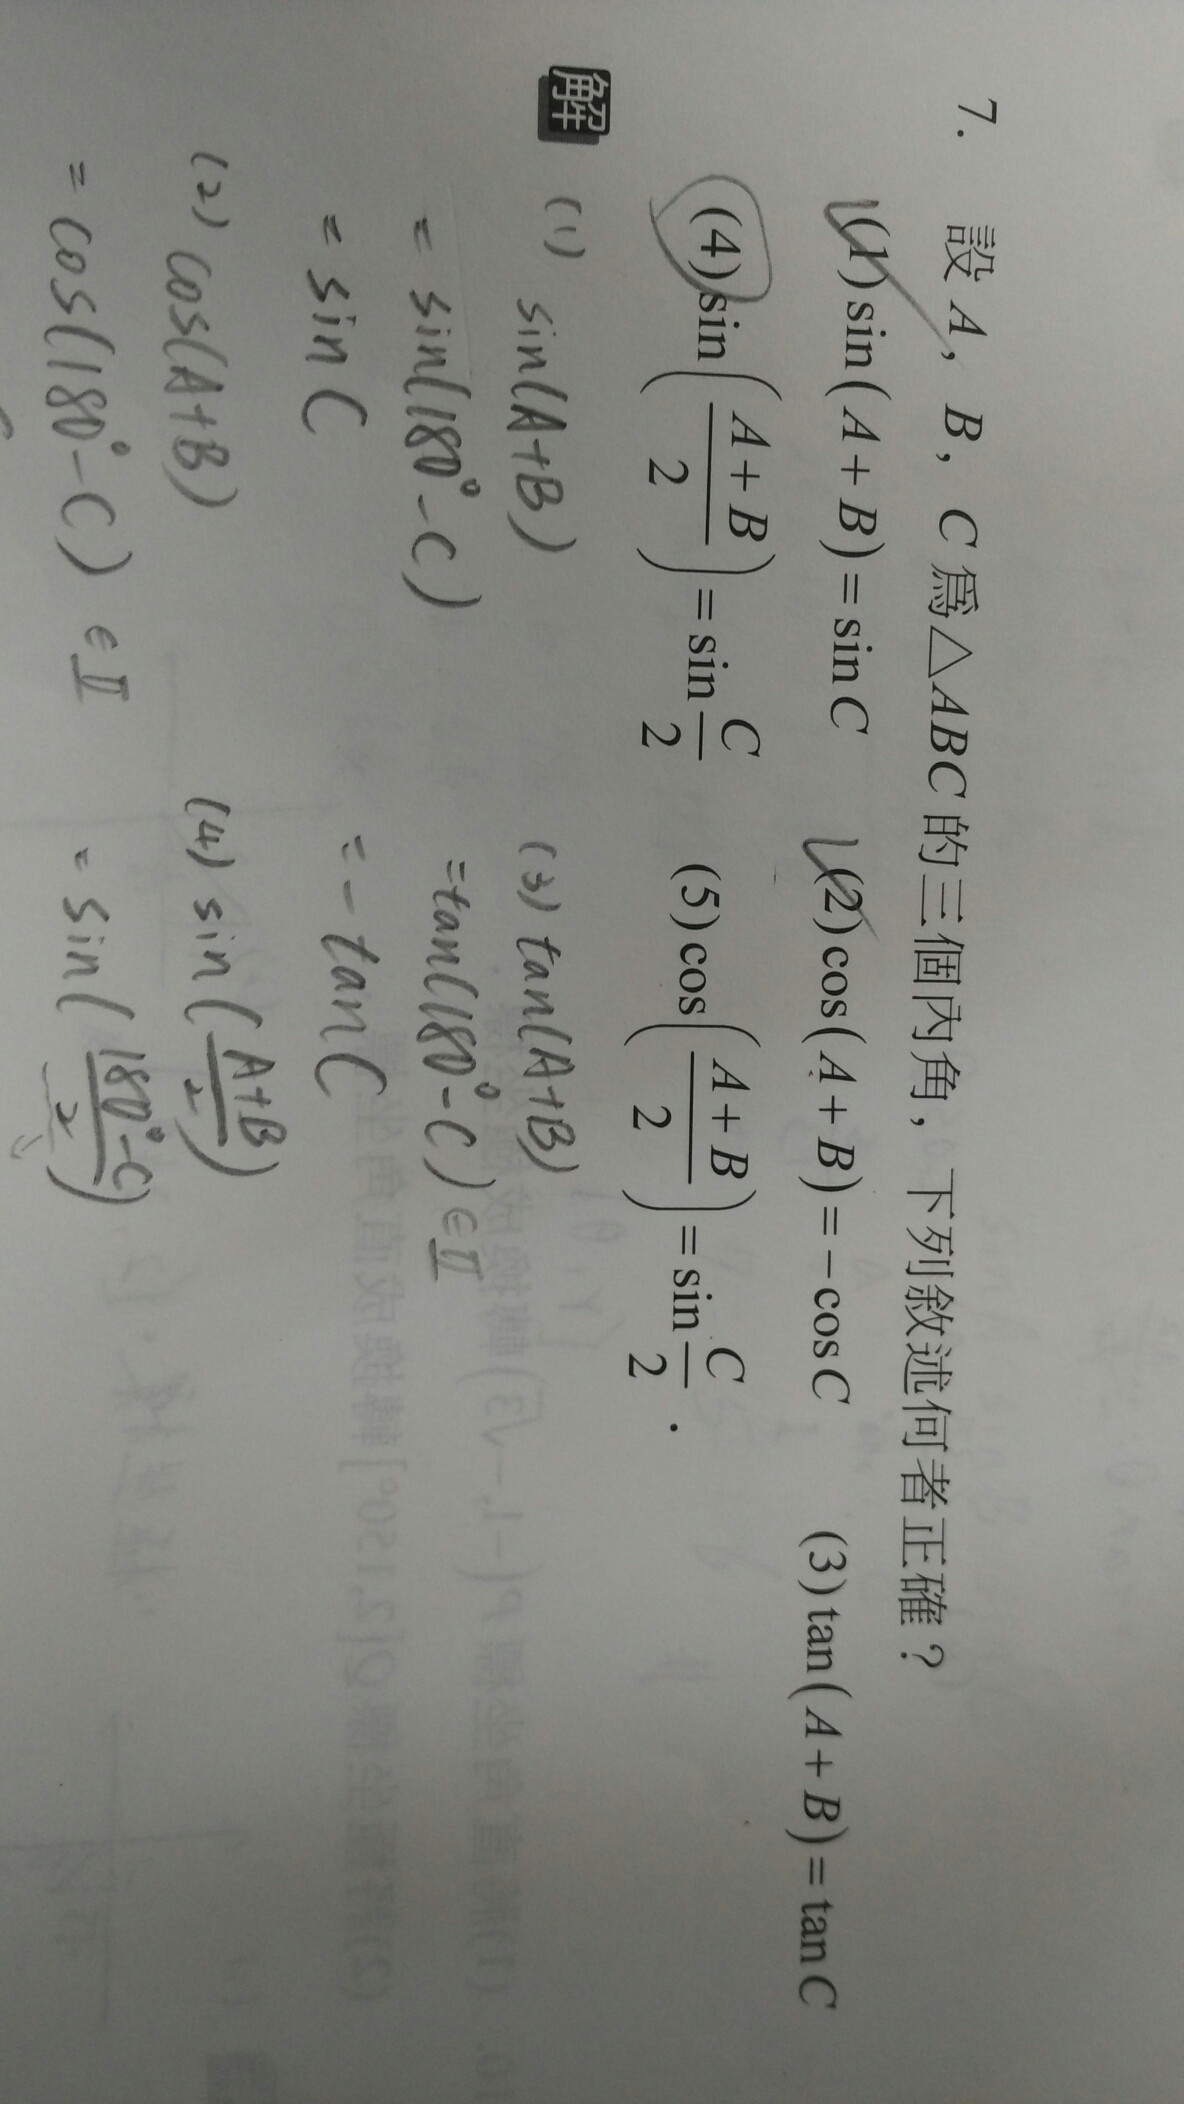 7. 設 A，B，C 為△ABC 的三個內角，下列敘述何者正確？
(1) sin(A+B)=sinC (2) cos(A+B)=−cosC (3) tan(A+B)=tanC
(4) sin(A+B/2)=sin C/2 (5) cos(A+B/2)=sin C/2．
解 (1) sin(A+B)
= sin(180°-C)
= sin C
(2) cos(A+B)
= cos(180°-C) ∈ II
(3) tan(A+B)
=tan(180°-C) ∈ II
= - tan C
(4) sin(A+B/2)
= sin(180°-C/2)